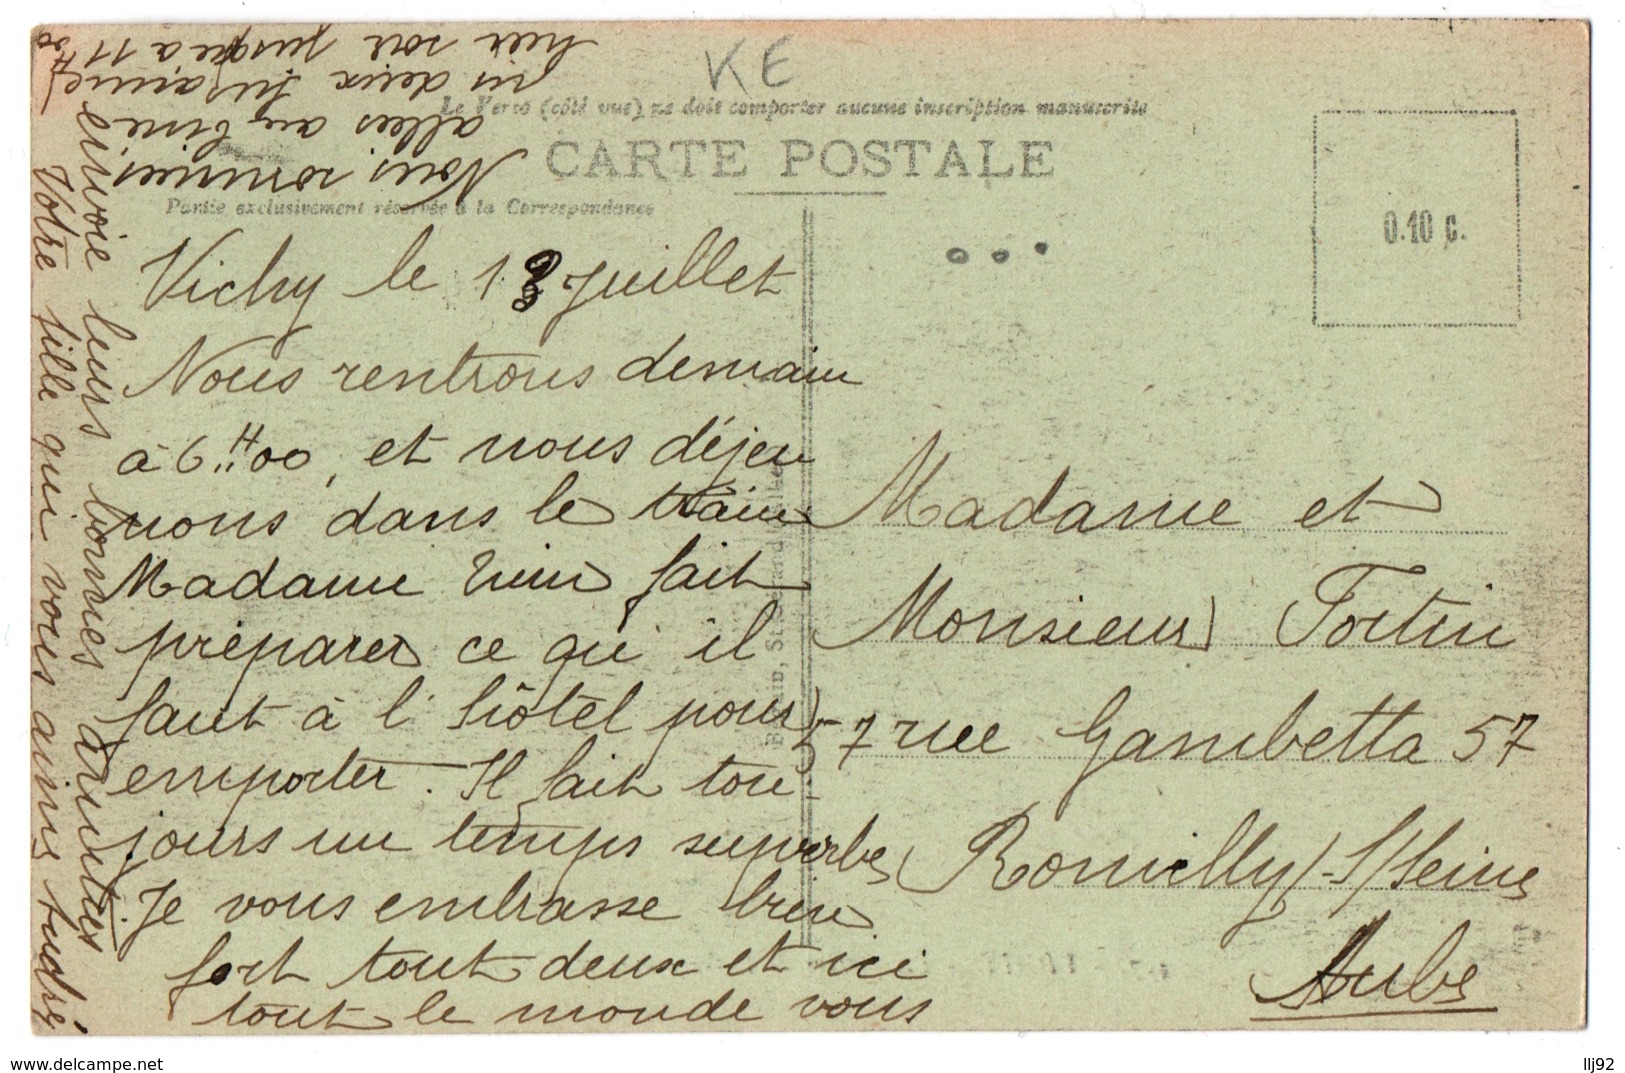 KE
Le Verso (côté vue) ne doit comporter aucune inscription manuscrite
CARTE POSTALE
Partie exclusivement réservée à la Correspondance
0.10 c.
Vichy le 18 Juillet
Nous rentrons demain
à 6H00, et nous déjeu
nons dans le train
Madame fait
préparer ce qu'il
faut à l'hôtel pour
emporter. Il fait tou-
jours un temps superbe
Je vous embrasse bien
fort tout deux et ici
tout le monde vous
envoie leurs bonnes amitiés
Votre fille qui vous aime Andrée
Nous sommes
allées au ciné
les deux Suzanne
hier soir jusque à 11H00
Madame et
Monsieur Fortin
57 rue Gambetta 57
Romilly-S/Seine
Aube
http://www.delcampe.net
llj92